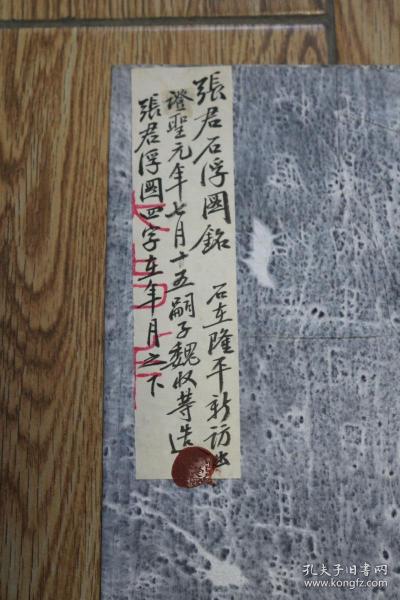 張君石浮圖銘 石在隆平新訪出
證聖元年七月十五嗣子魏收等造
張君浮圖四字在年月之下
孔夫子旧书网
www.kongfz.com